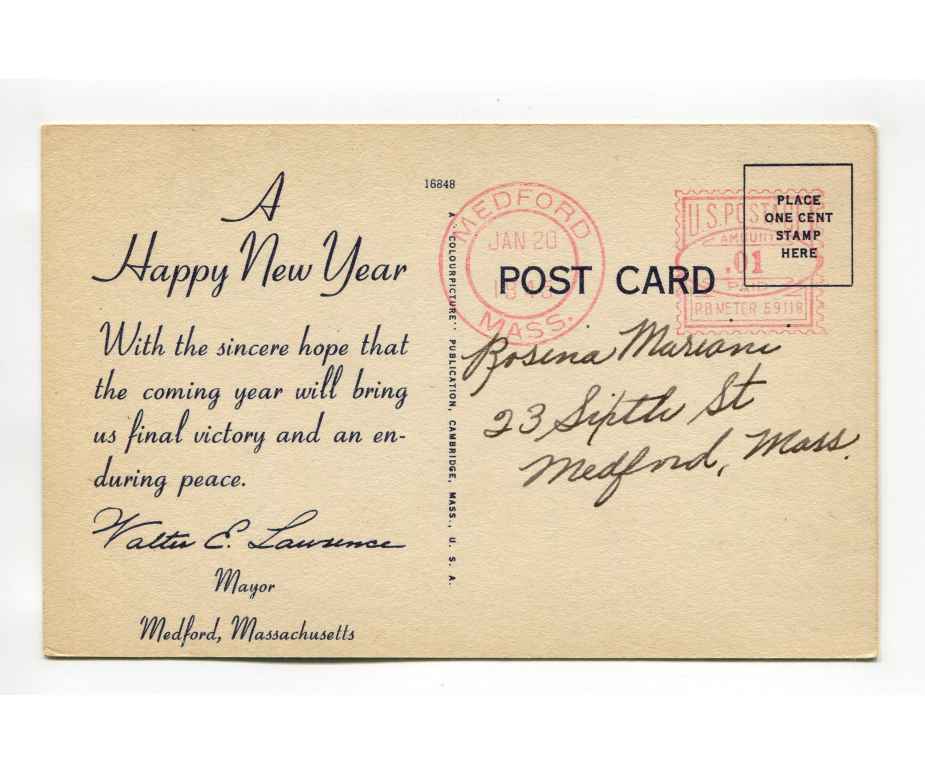 A
Happy New Year
With the sincere hope that
the coming year will bring
us final victory and an en-
during peace.
Walter E. Lawrence
Mayor
Medford, Massachusetts
16848
A "COLOURPICTURE" PUBLICATION, CAMBRIDGE, MASS., U. S. A.
MEDFORD
JAN 20
MASS.
POST CARD
U.S. POSTAGE
AMOUNT
.01
PAID
P.B. METER 59118
PLACE
ONE CENT
STAMP
HERE
Rosina Mariani
23 Sixth St
Medford, Mass.